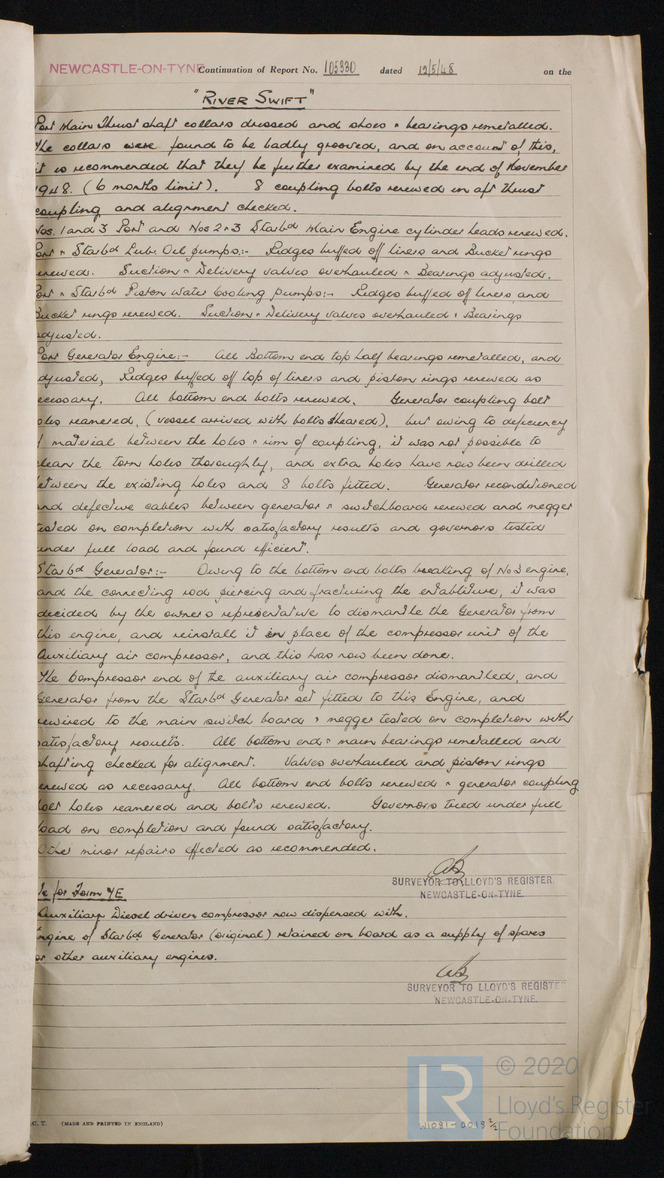 NEWCASTLE-ON-TYNE Continuation of Report No. 105330 dated 12/5/48 on the
"RIVER SWIFT"
Port Main Thrust shaft collars dressed and shoes & bearings remetalled.
The collars were found to be badly grooved, and on account of this,
it is recommended that they be further examined by the end of November
1948. (6 months limit). 8 coupling bolts renewed in aft thrust
coupling and alignment checked.
Nos. 1 and 3 Port and Nos 2 & 3 Starbd Main Engine cylinder heads renewed.
Port & Starbd Lub. Oil pumps:- Ridges buffed off liners and Bucket rings
renewed. Suction & Delivery valves overhauled & Bearings adjusted.
Port & Starbd Piston Water Cooling pumps:- Ridges buffed off liners and
Bucket rings renewed. Suction & Delivery valves overhauled & Bearings
adjusted.
Port Generator Engine:- All Bottom end top half bearings remetalled, and
adjusted, Ridges buffed off top of liners and piston rings renewed as
ecessary. All bottom end bolts renewed. Generator coupling bolt
oles reamered, (vessel arrived with bolts sheared), but owing to deficiency
f material between the holes & rim of coupling, it was not possible to
clean the torn holes thoroughly, and extra holes have now been drilled
etween the existing holes and 8 bolts fitted. Generator reconditioned
and defective cables between generator & switchboard renewed and megger
tested on completion with satisfactory results and governors tested
under full load and found efficient.
Starbd Generator:- Owing to the bottom end bolts breaking of No 2 engine,
and the connecting rod piercing and fracturing the entablature, it was
decided by the owners representative to dismantle the Generator from
this engine, and reinstall it in place of the compressor unit of the
Auxiliary air compressor, and this has now been done.
The Compressor end of the auxiliary air compressor dismantled, and
Generator from the Starbd Generator set fitted to this Engine, and
rewired to the main switch board & megger tested on completion with
satisfactory results. All bottom end & main bearings remetalled and
shafting checked for alignment. Valves overhauled and piston rings
renewed as necessary. All bottom end bolts renewed & generator coupling
bolt holes reamered and bolts renewed. Governors tried under full
load on completion and found satisfactory.
Other minor repairs effected as recommended.
SURVEYOR TO LLOYD'S REGISTER
NEWCASTLE-ON-TYNE.
te for Form 4E
Auxiliary Diesel driven compressor now dispensed with.
ngine of Starbd Generator (original) retained on board as a supply of spares
or other auxiliary engines.
SURVEYOR TO LLOYD'S REGISTER
NEWCASTLE-ON-TYNE.
C. T. (MADE AND PRINTED IN ENGLAND)
LR © 2020
Lloyd's Register
Foundation